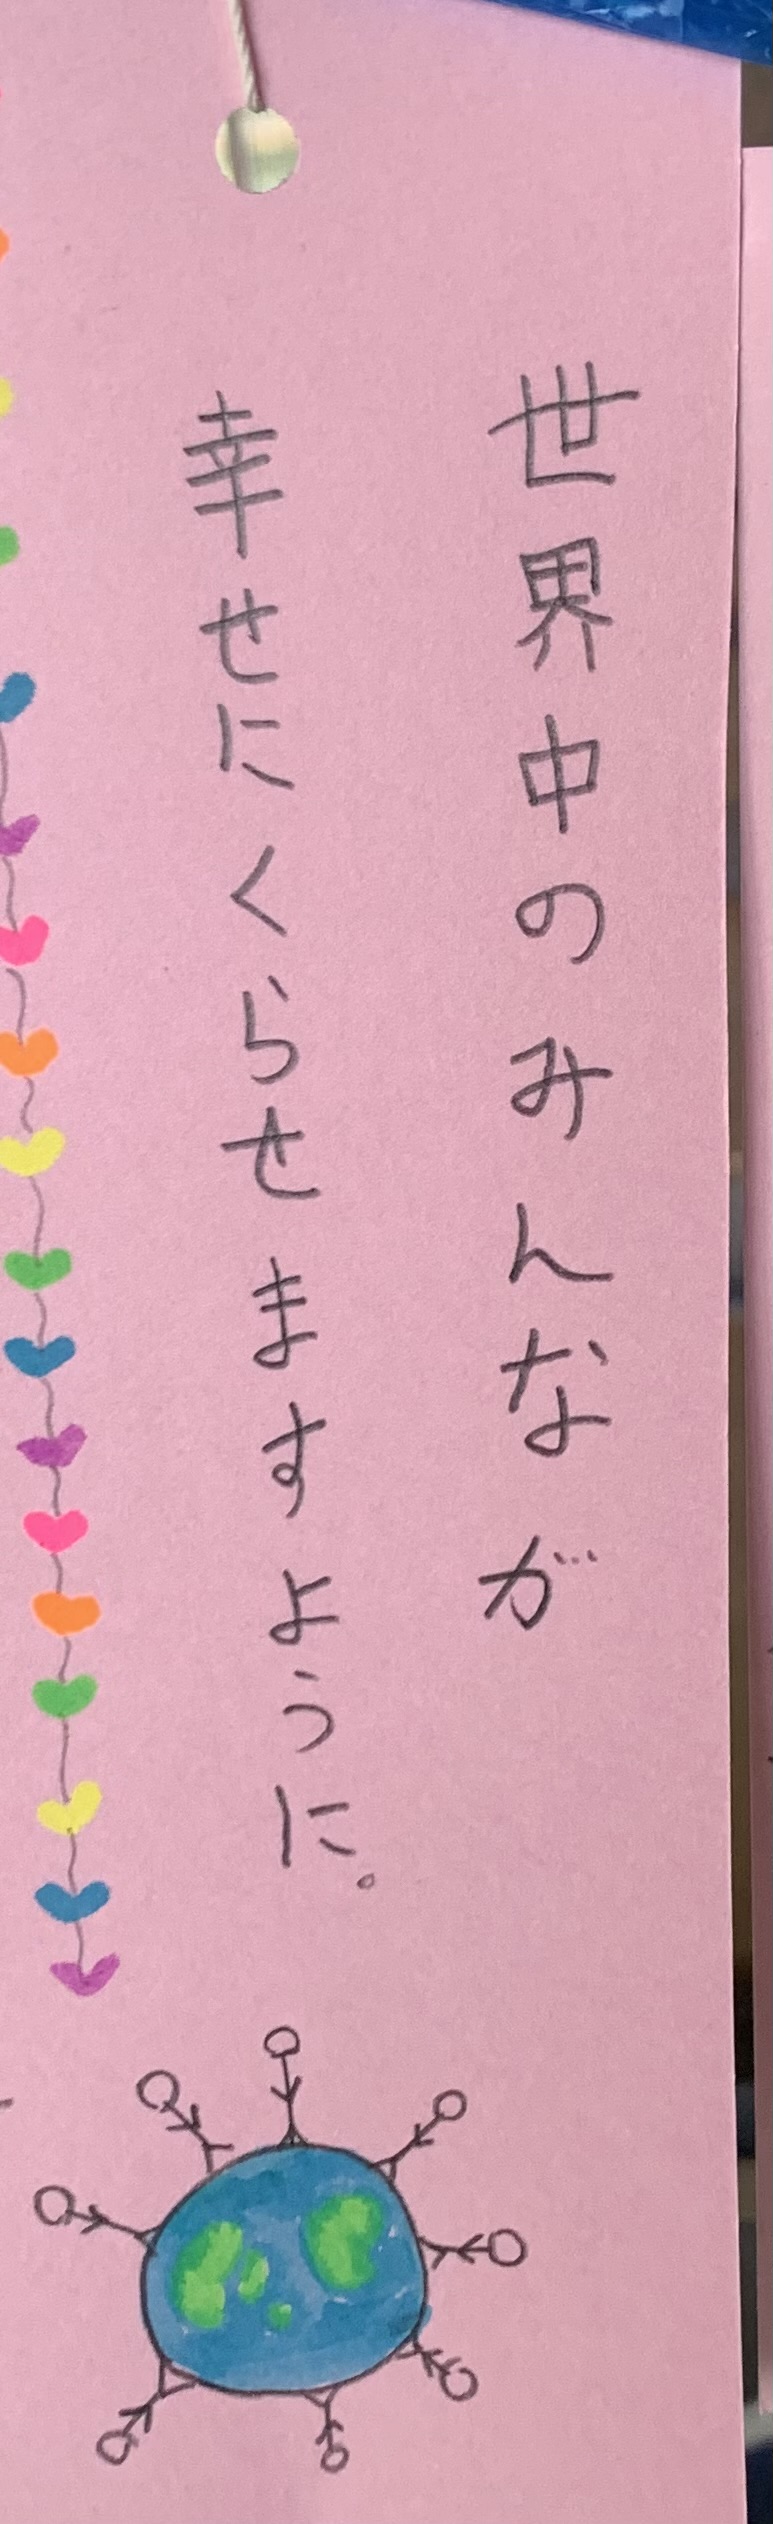 世界中のみんなが
幸せにくらせますように。